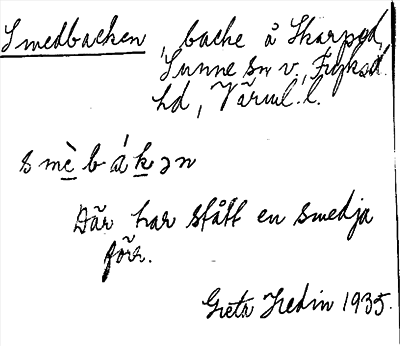 Smedbacken, backe å Skarpgd,
Sunne sn v., Fryksd.
hd, Värml. l.
smè̱báḵən
Där har stått en smedja
förr.
Greta Hedin 1935.